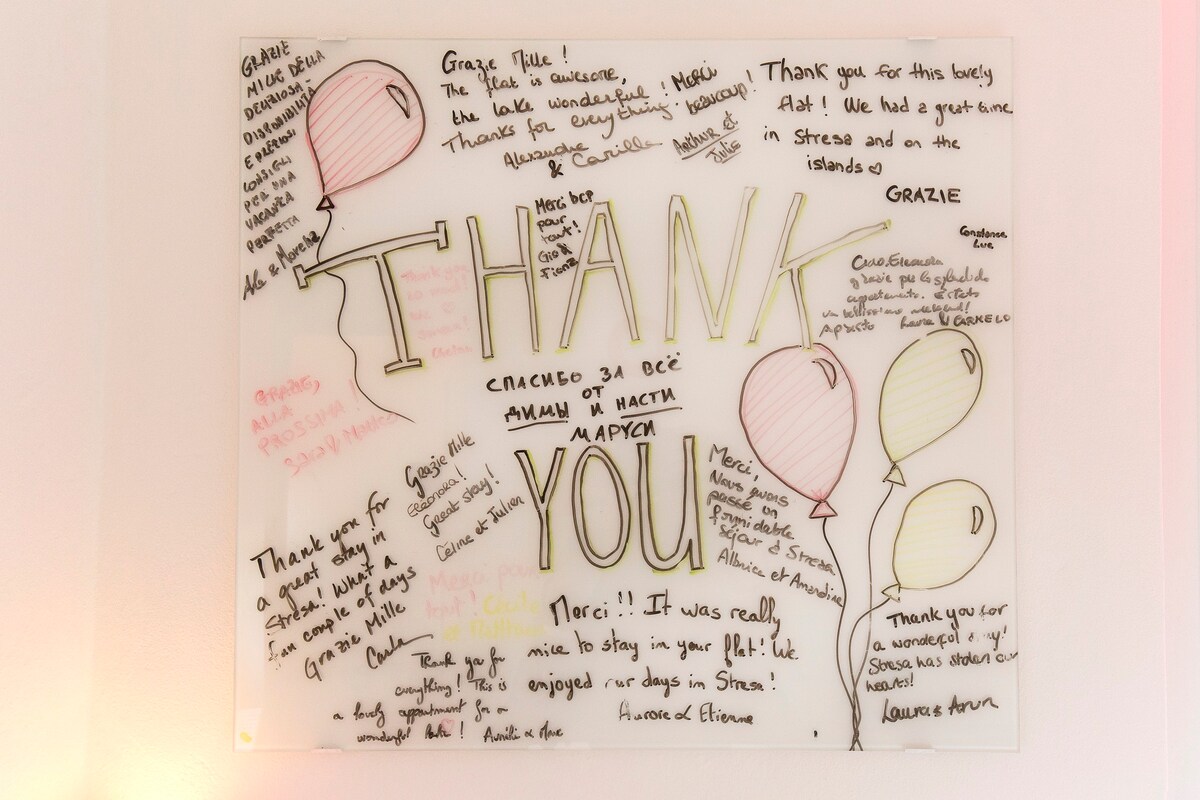 GRAZIE
MILLE DELLA
DELIZIOSA
DISPONIBILITÀ
E PREZIOSI
CONSIGLI
PER UNA
VACANZA
PERFETTA
Ale & Morena
Grazie Mille!
The flat is awesome,
the lake wonderful!
Thanks for everything!
Alexandre
& Camille
Merci
beaucoup!
Arthur et
Julie
Thank you for this lovely
flat! We had a great time
in Stresa and on the
islands
GRAZIE
Constance
Luc
THANK
Merci bcp
pour
tout!
Gio &
Thank you
so much
Ciao Eleonora
grazie per lo splendido
appartamento. È stato
un bellissimo weekend!
A presto Laura & CARMELO
СПАСИБО ЗА ВСЁ
ОТ
ДИМЫ И НАСТИ
МАРУСИ
GRAZIE,
ALLA
PROSSIMA!
YOU
Grazie Mille
Eleonora!
Great stay!
Céline et Julien
Merci,
Nous avons
passé un
formidable
séjour à Stresa
et Amandine
Thank you for
a great stay in
Stresa! What a
fun couple of days
Grazie Mille
Carla
Merci pour
tout! Cécile
Merci!! It was really
nice to stay in your flat! We
enjoyed our days in Stresa!
Aurore & Etienne
Thank you for
everything! This is
a lovely appartment for a
wonderful
Thank you for
a wonderful stay!
Stresa has stolen our
hearts!
Laura & Arun